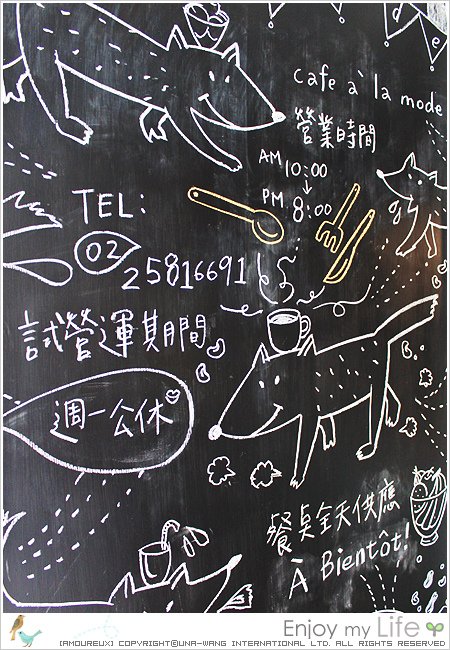 cafe à la mode
營業時間
AM 10:00
↓
PM 8:00
TEL:
02 25816691
試營運期間
週一公休
餐桌全天供應
À Bientôt!
Enjoy my Life
(AMOUREUX) COPYRIGHT©UNA-WANG INTERNATIONAL LTD. ALL RIGHTS RESERVED